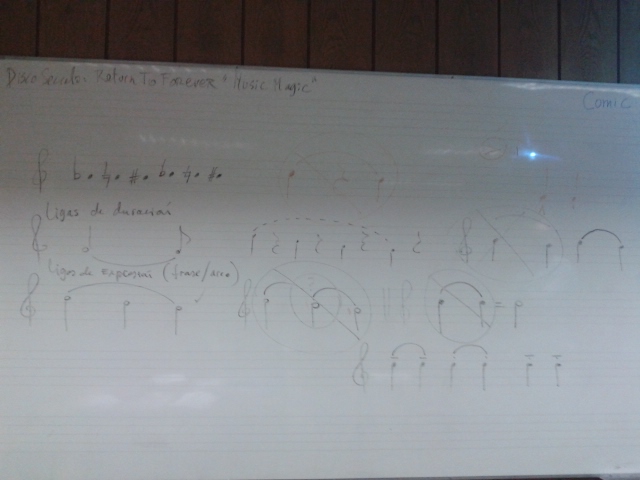 Disco Secreto: Return To Forever "Music Magic"
Comic
Ligas de duración
Ligas de expresión (frase/arco)